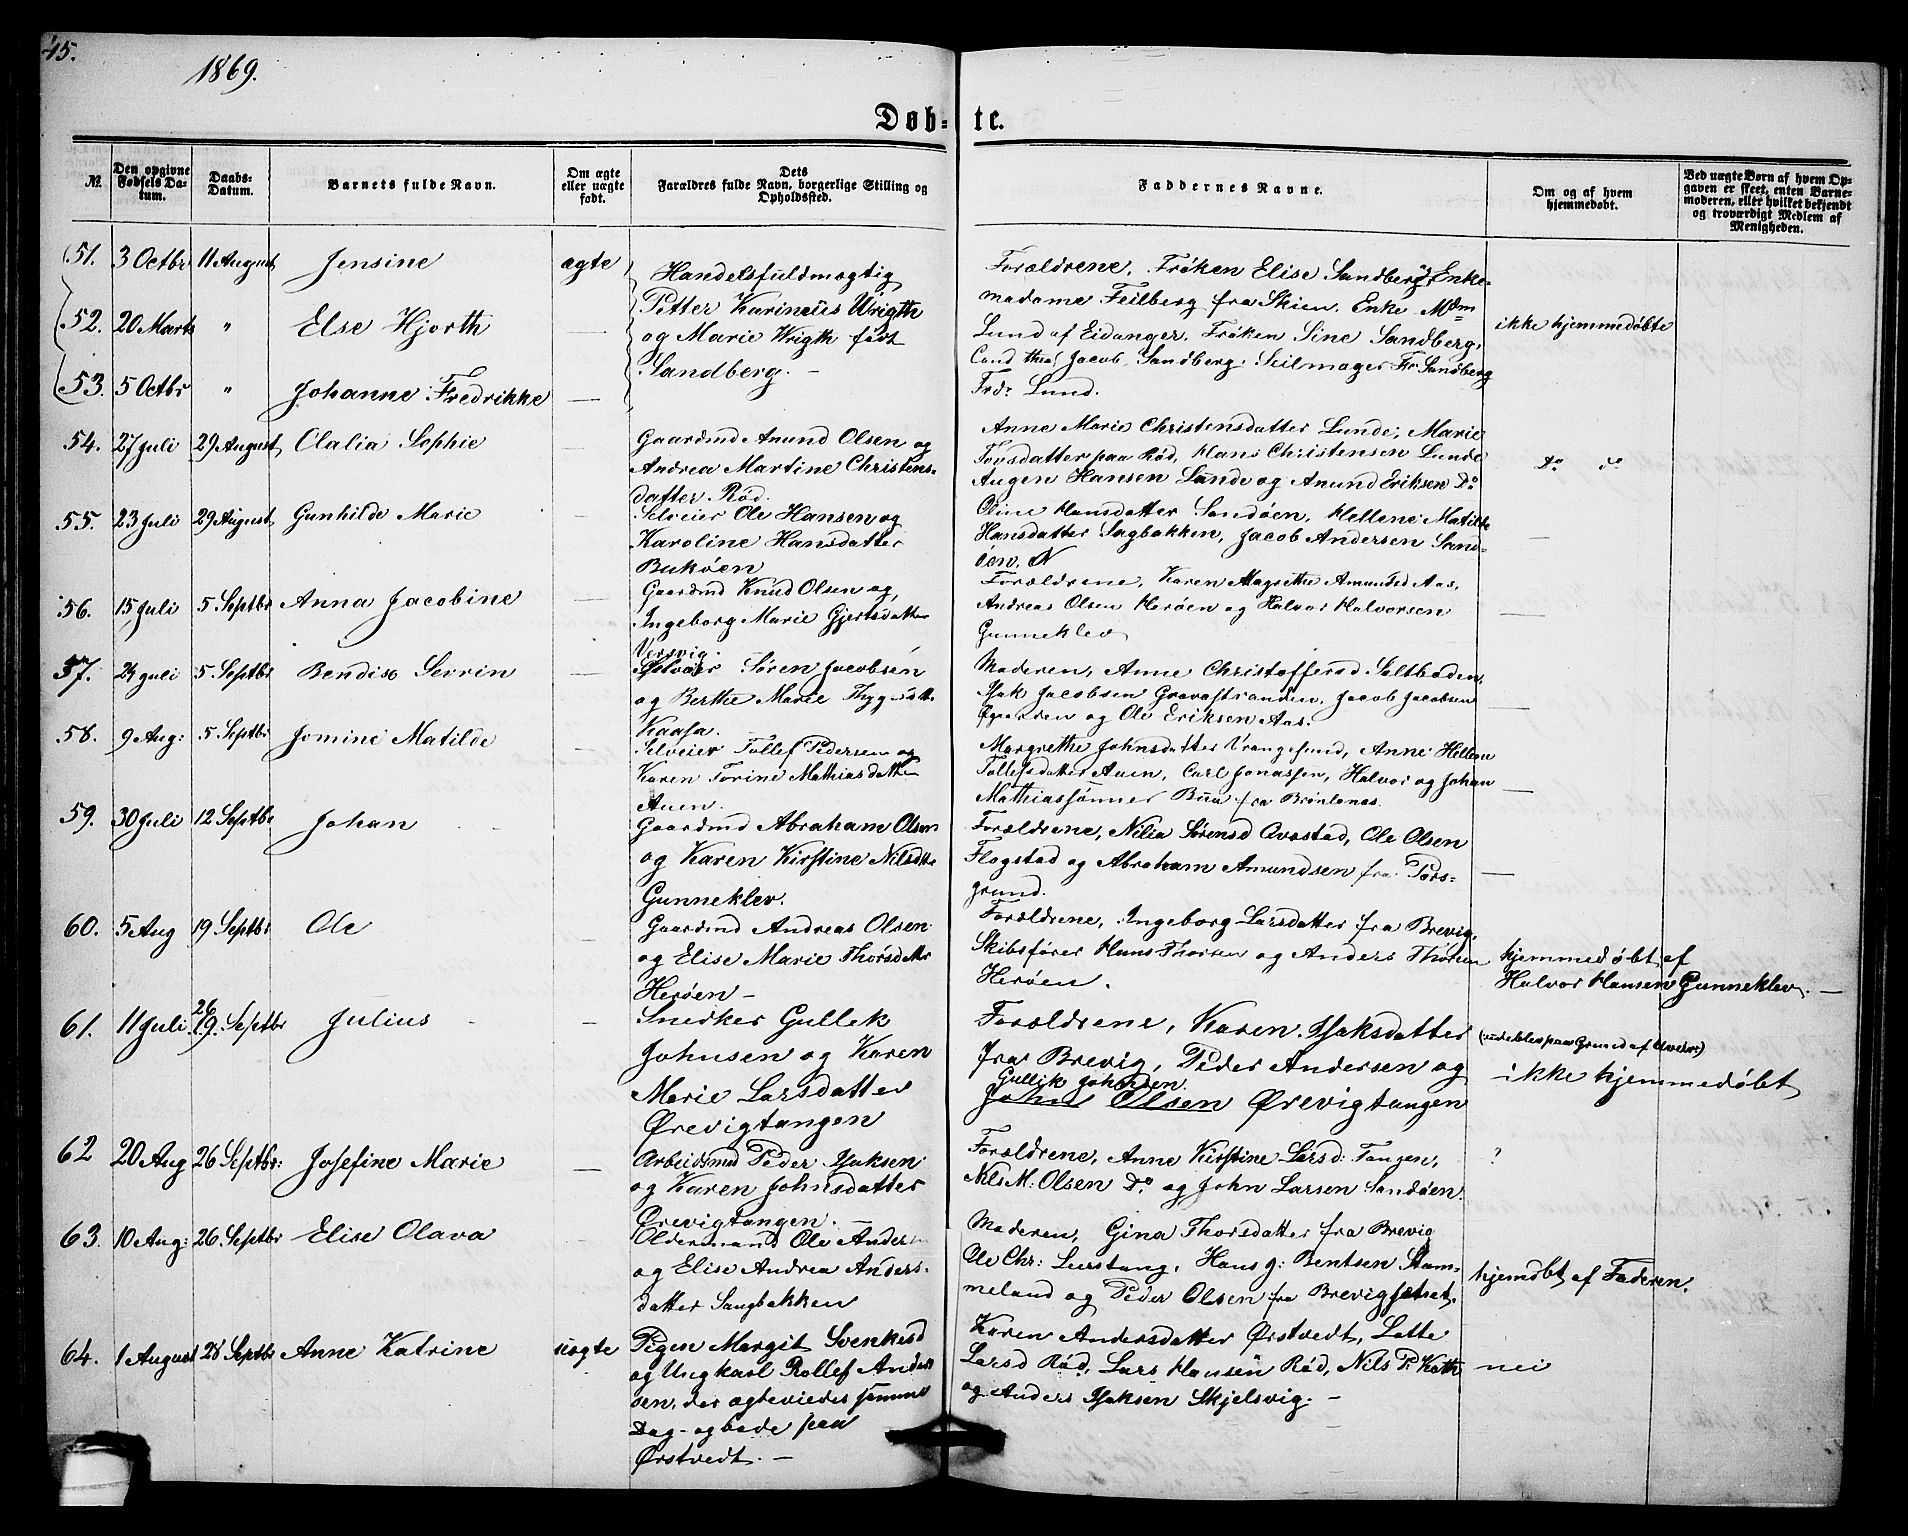 45.
1869.
Døb-te.
№
Den opgivne Fødsels Da-tum.
Daabs-Datum.
Barnets fulde Navn.
Om ægte eller uægte født.
Dets Forældres fulde Navn, borgerlige Stilling og Opholdssted.
Faddernes Navne.
Om og af hvem hjemmedøbt.
Ved uægte Børn af hvem Op-gaven er skeet, enten Barne-moderen, eller hvilket bekjendt og troværdigt Medlem af Menigheden.
51. 3 Octbr 11 August Jensine ægte
52. 20 Marts " Else Hjorth —
53. 5 Octbr " Johanne Fredrikke —
Handelsfuldmægtig
Petter Karinius Wrigth
og Marie Wrigth født
Sandberg. —
Forældrene, Frøken Elise Sandberg, Enke-
madame Feilberg fra Skien, Enke Mdm
Lund af Eidanger, Frøken Sine Sandberg,
Cand theol Jacob Sandberg, Seilmager Fr Sandberg
Frdr Lund.
ikke hjemmedøbte
54. 27 Juli 29 August Olalia Sophie —
Gaardmd Anund Olsen og
Andrea Martine Christens-
datter Rød.
Anne Marie Christensdatter Lunde, Marie
Tovsdatter paa Rød, Hans Christensen Lunde
Augen Hansen Lunde og Anund Eriksen Do
Do do
55. 23 Juli 29 August Gunhilde Marie —
Selveier Ole Hansen og
Karoline Hansdatter
Bukøen
Oline Hansdatter Sandøen, Hellene Matilde
Hansdatter Sagbakken, Jacob Andersen Sand-
øen.
—
56. 15 Juli 5 Septbr Anna Jacobine —
Gaardmd Knud Olsen og
Ingeborg Marie Gjertsdatter
Versvig.
Forældrene, Karen Magrethe Amundsd Aas,
Andreas Olsen Herøen og Halvor Halvorsen
Gunneklev
—
57. 24 Juli 5 Septbr Bendise Sevrin —
Selveier Søren Jacobsen
og Berthe Marie Thygesdttr
Kaasa.
Moderen, Anne Christoffersd Saltboden,
Isak Jacobsen Gravastranden, Jacob Jacobsen
Øgaarden og Ole Eriksen Aas.
—
58. 9 Aug: 5 Septbr Jomine Matilde —
Selveier Tollef Pedersen og
Karen Torine Mathiasdatter
Auen.
Margrethe Johnsdatter Vrangesund, Anne Hellene
Tollefsdatter Auen, Carl Jonassen, Halvor og Johan
Mathiassønner Bua fra Brønlenæs.
—
59. 30 Juli 12 Septbr Johan —
Gaardmd Abraham Olsen
og Karen Kirstine Nilsdttr
Gunneklev.
Forældrene, Nilia Sørensd Avastad, Ole Olsen
Flogstad og Abraham Amundsen fra Pors-
grund.
—
60. 5 Aug 19 Septbr Ole —
Gaardmd Andreas Olsen
og Elise Marie Thorsdatter
Herøen —
Forældrene, Ingeborg Larsdatter fra Brevig,
Skibsfører Hans Thorsen og Anders Thorsen
Herøen.
hjemmedøbt af
Halvor Hansen Gunneklev. —
61. 11 Juli 26 19. Septbr Julius —
Snedker Gullek
Johnsen og Karen
Marie Larsdatter
Ørevigtangen
Forældrene, Karen Isaksdatter
fra Brevig, Peder Andersen og
Gullik Johnsen.
John Olsen Ørevigtangen
(udeblev paa Grund af Uveir)
ikke hjemmedøbt
62 20 Aug 26 Septbr: Josefine Marie —
Arbeidsmd Peder Isaksen
og Karen Johnsdatter
Ørevigtangen. —
Forældrene, Anne Kirstine Larsd: Tangen,
Nils M: Olsen Do og John Larsen Sandøen.
?
63. 10 Aug: 26 Septbr Elise Olava —
Oldermand Ole Anders
og Elise Andrea Anders-
datter Saugbakken
Moderen, Gina Thorsdatter fra Brevig
Ole Chr: Lerstang, Hans J: Bentsen Stam-
meland og Peder Olsen fra Brevigstrat.
hjemdøbt af Faderen.
64. 1 August 28 Septbr Anne Katrine uægte
Pigen Margit Svenkesd
og Ungkarl Rollef Ander
sen, der ægteviedes samme
Dag og bode paa
Ørstvedt. —
Karen Andersdatter Ørstvedt, Lotte
Larsd Rød, Lars Hansen Rød, Nils P. Kath
og Anders Isaksen Skjelsvig. —
nei